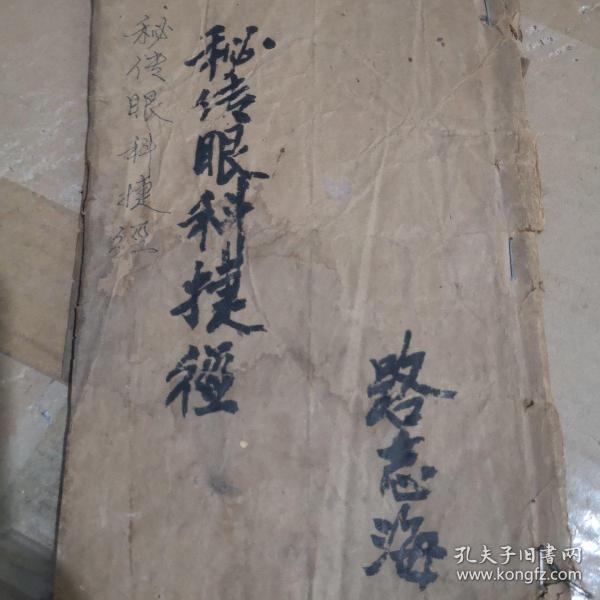 秘传眼科捷径
秘传眼科捷径
路志海
孔夫子旧书网
www.kongfz.com